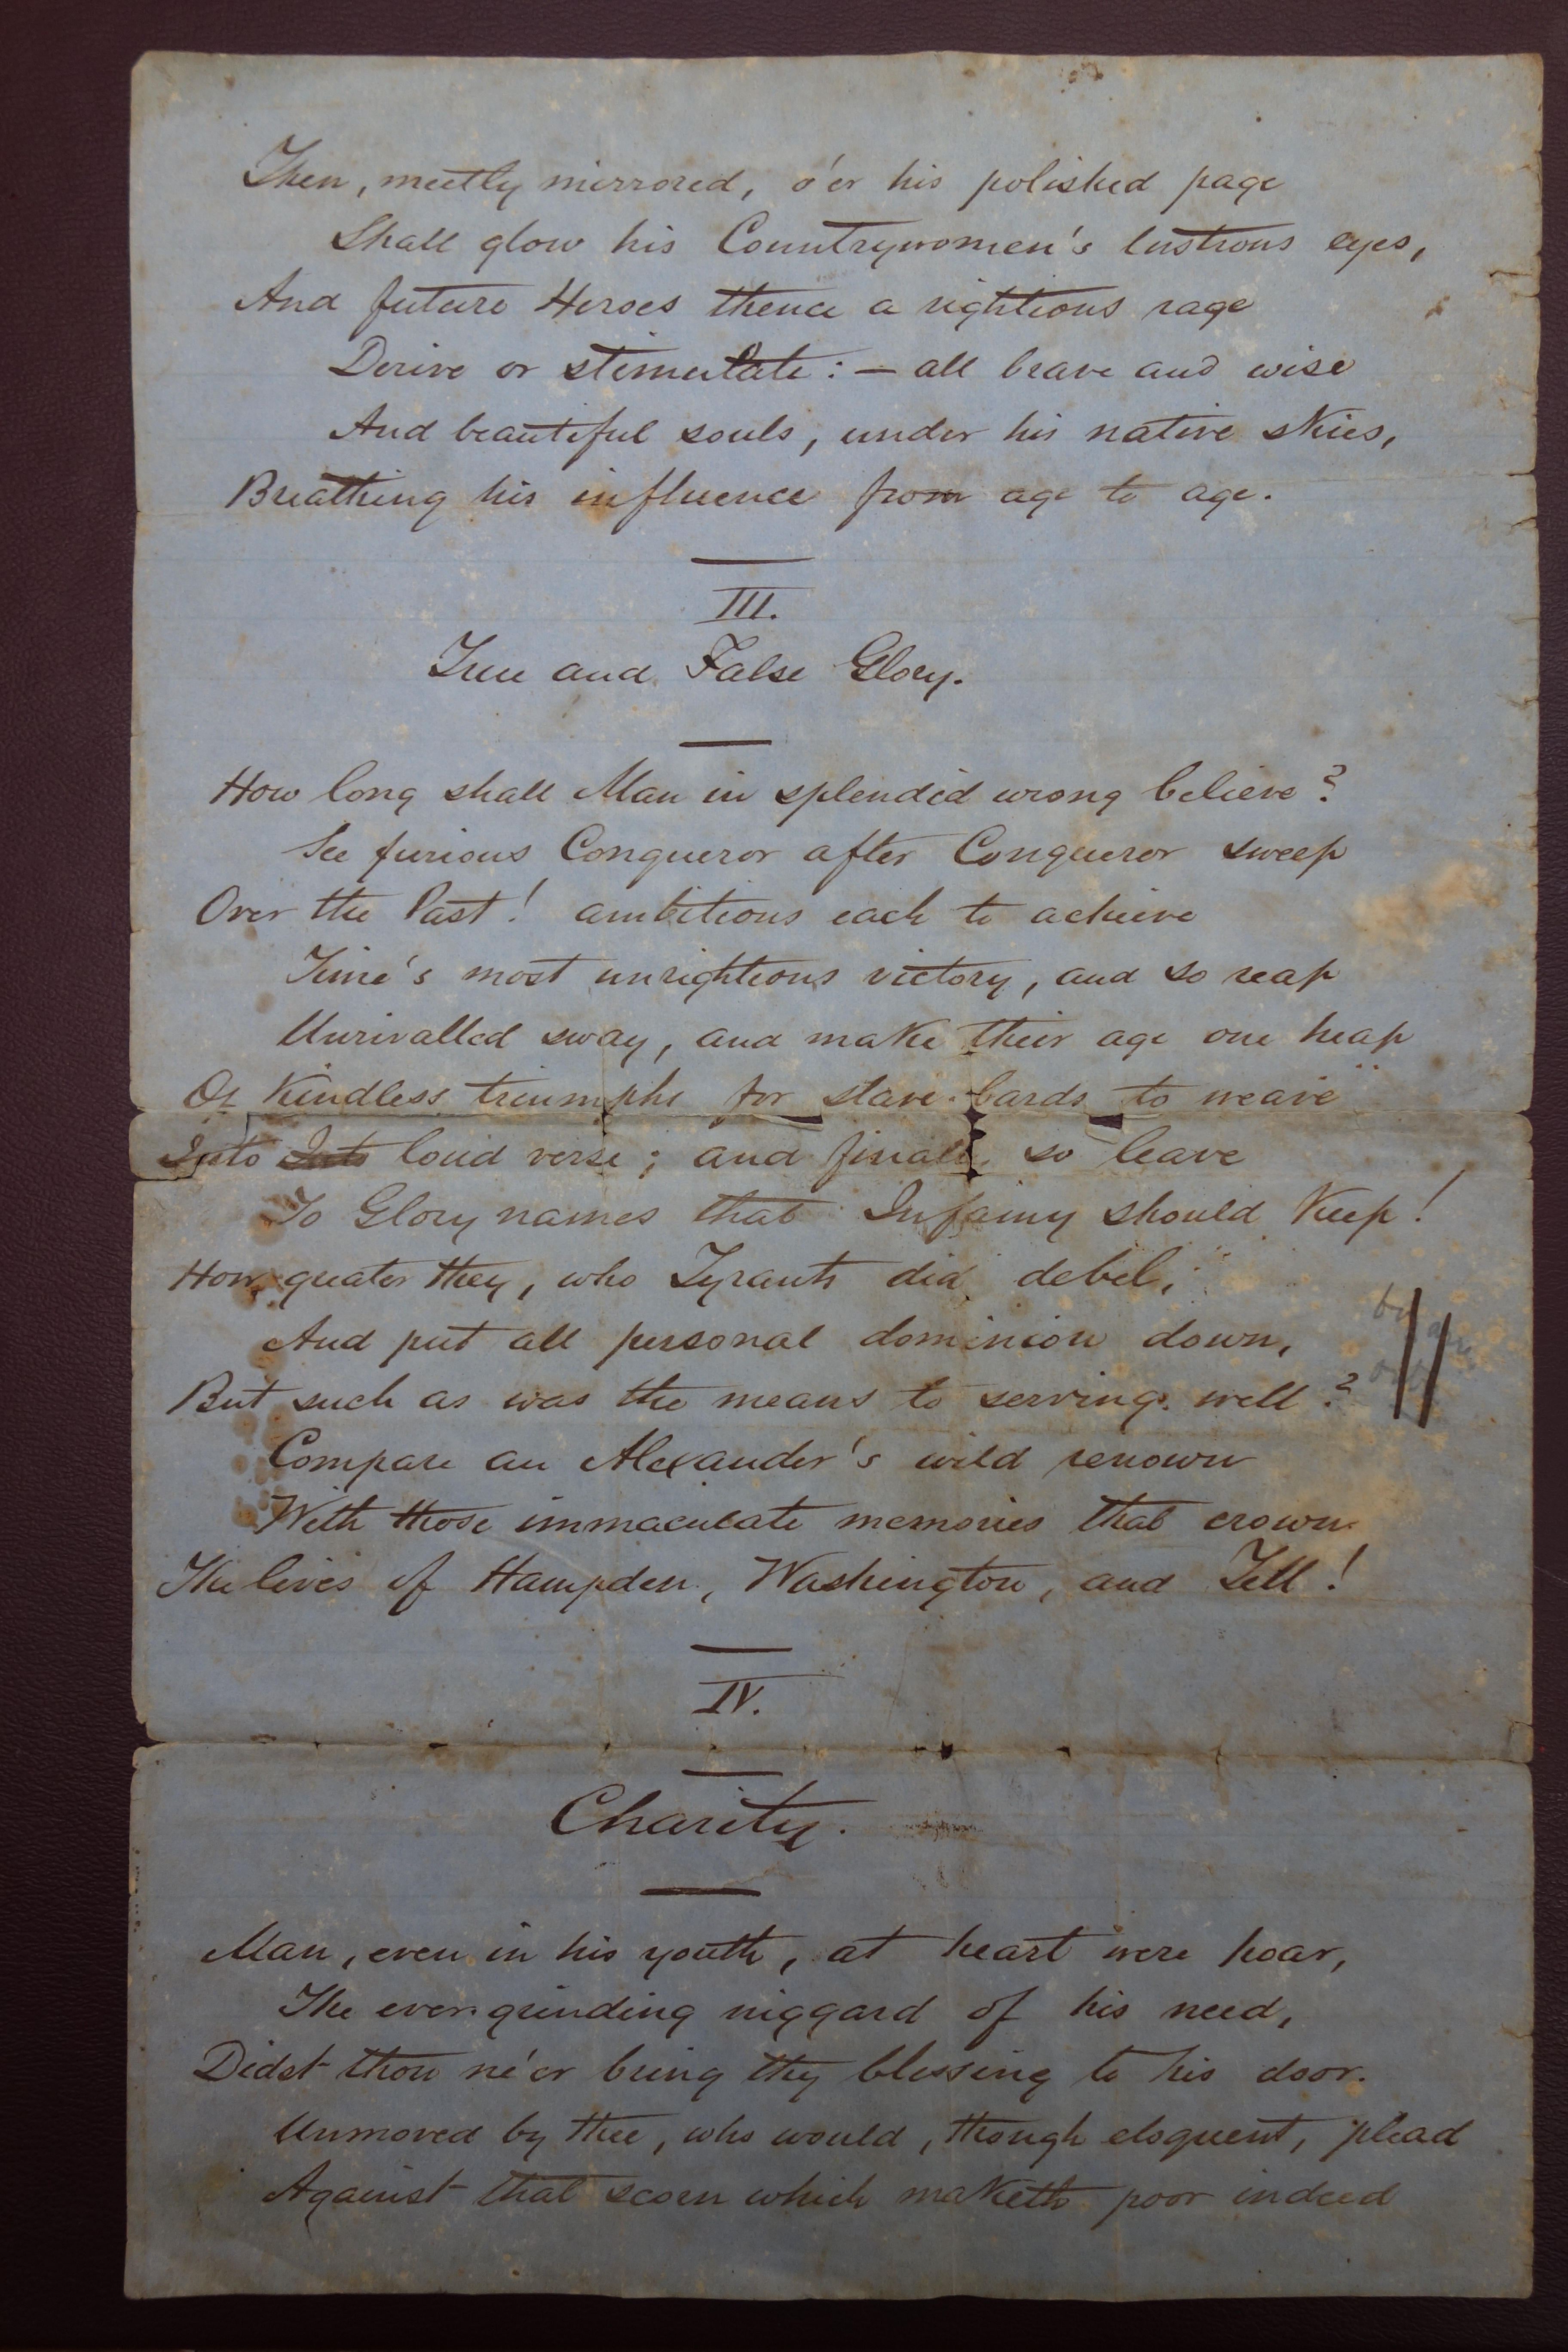 Then, meetly mirrored, o'er his polished page
Shall glow his Countrywomen's lustrous eyes,
And future Heroes thence a righteous rage
Derive or stimulate : — all brave and wise
And beautiful souls, under his native skies,
Breathing his influence from age to age.
III.
True and False Glory.
How long shall Man in splendid wrong believe?
See furious Conqueror after Conqueror sweep
Over the Past! ambitious each to achieve
Time's most unrighteous victory, and so reap
Unrivalled sway, and make their age one heap
Of Kindless triumphs for slave-bards to weave
Into Into loud verse; and finally so leave
To Glory names that Infamy should Keep!
How greater they, who Tyrants did debel,
And put all personal dominion down,
But such as was the means to serving well?
Compare an Alexander's wild renown
With those immaculate memories that crown
The lives of Hampden, Washington, and Tell!
IV.
Charity.
Man, even in his youth, at heart were hoar,
The ever-grinding niggard of his need,
Didst thou ne'er bring thy blessing to his door.
Unmoved by thee, who would, though eloquent, plead
Against that scorn which maketh poor indeed